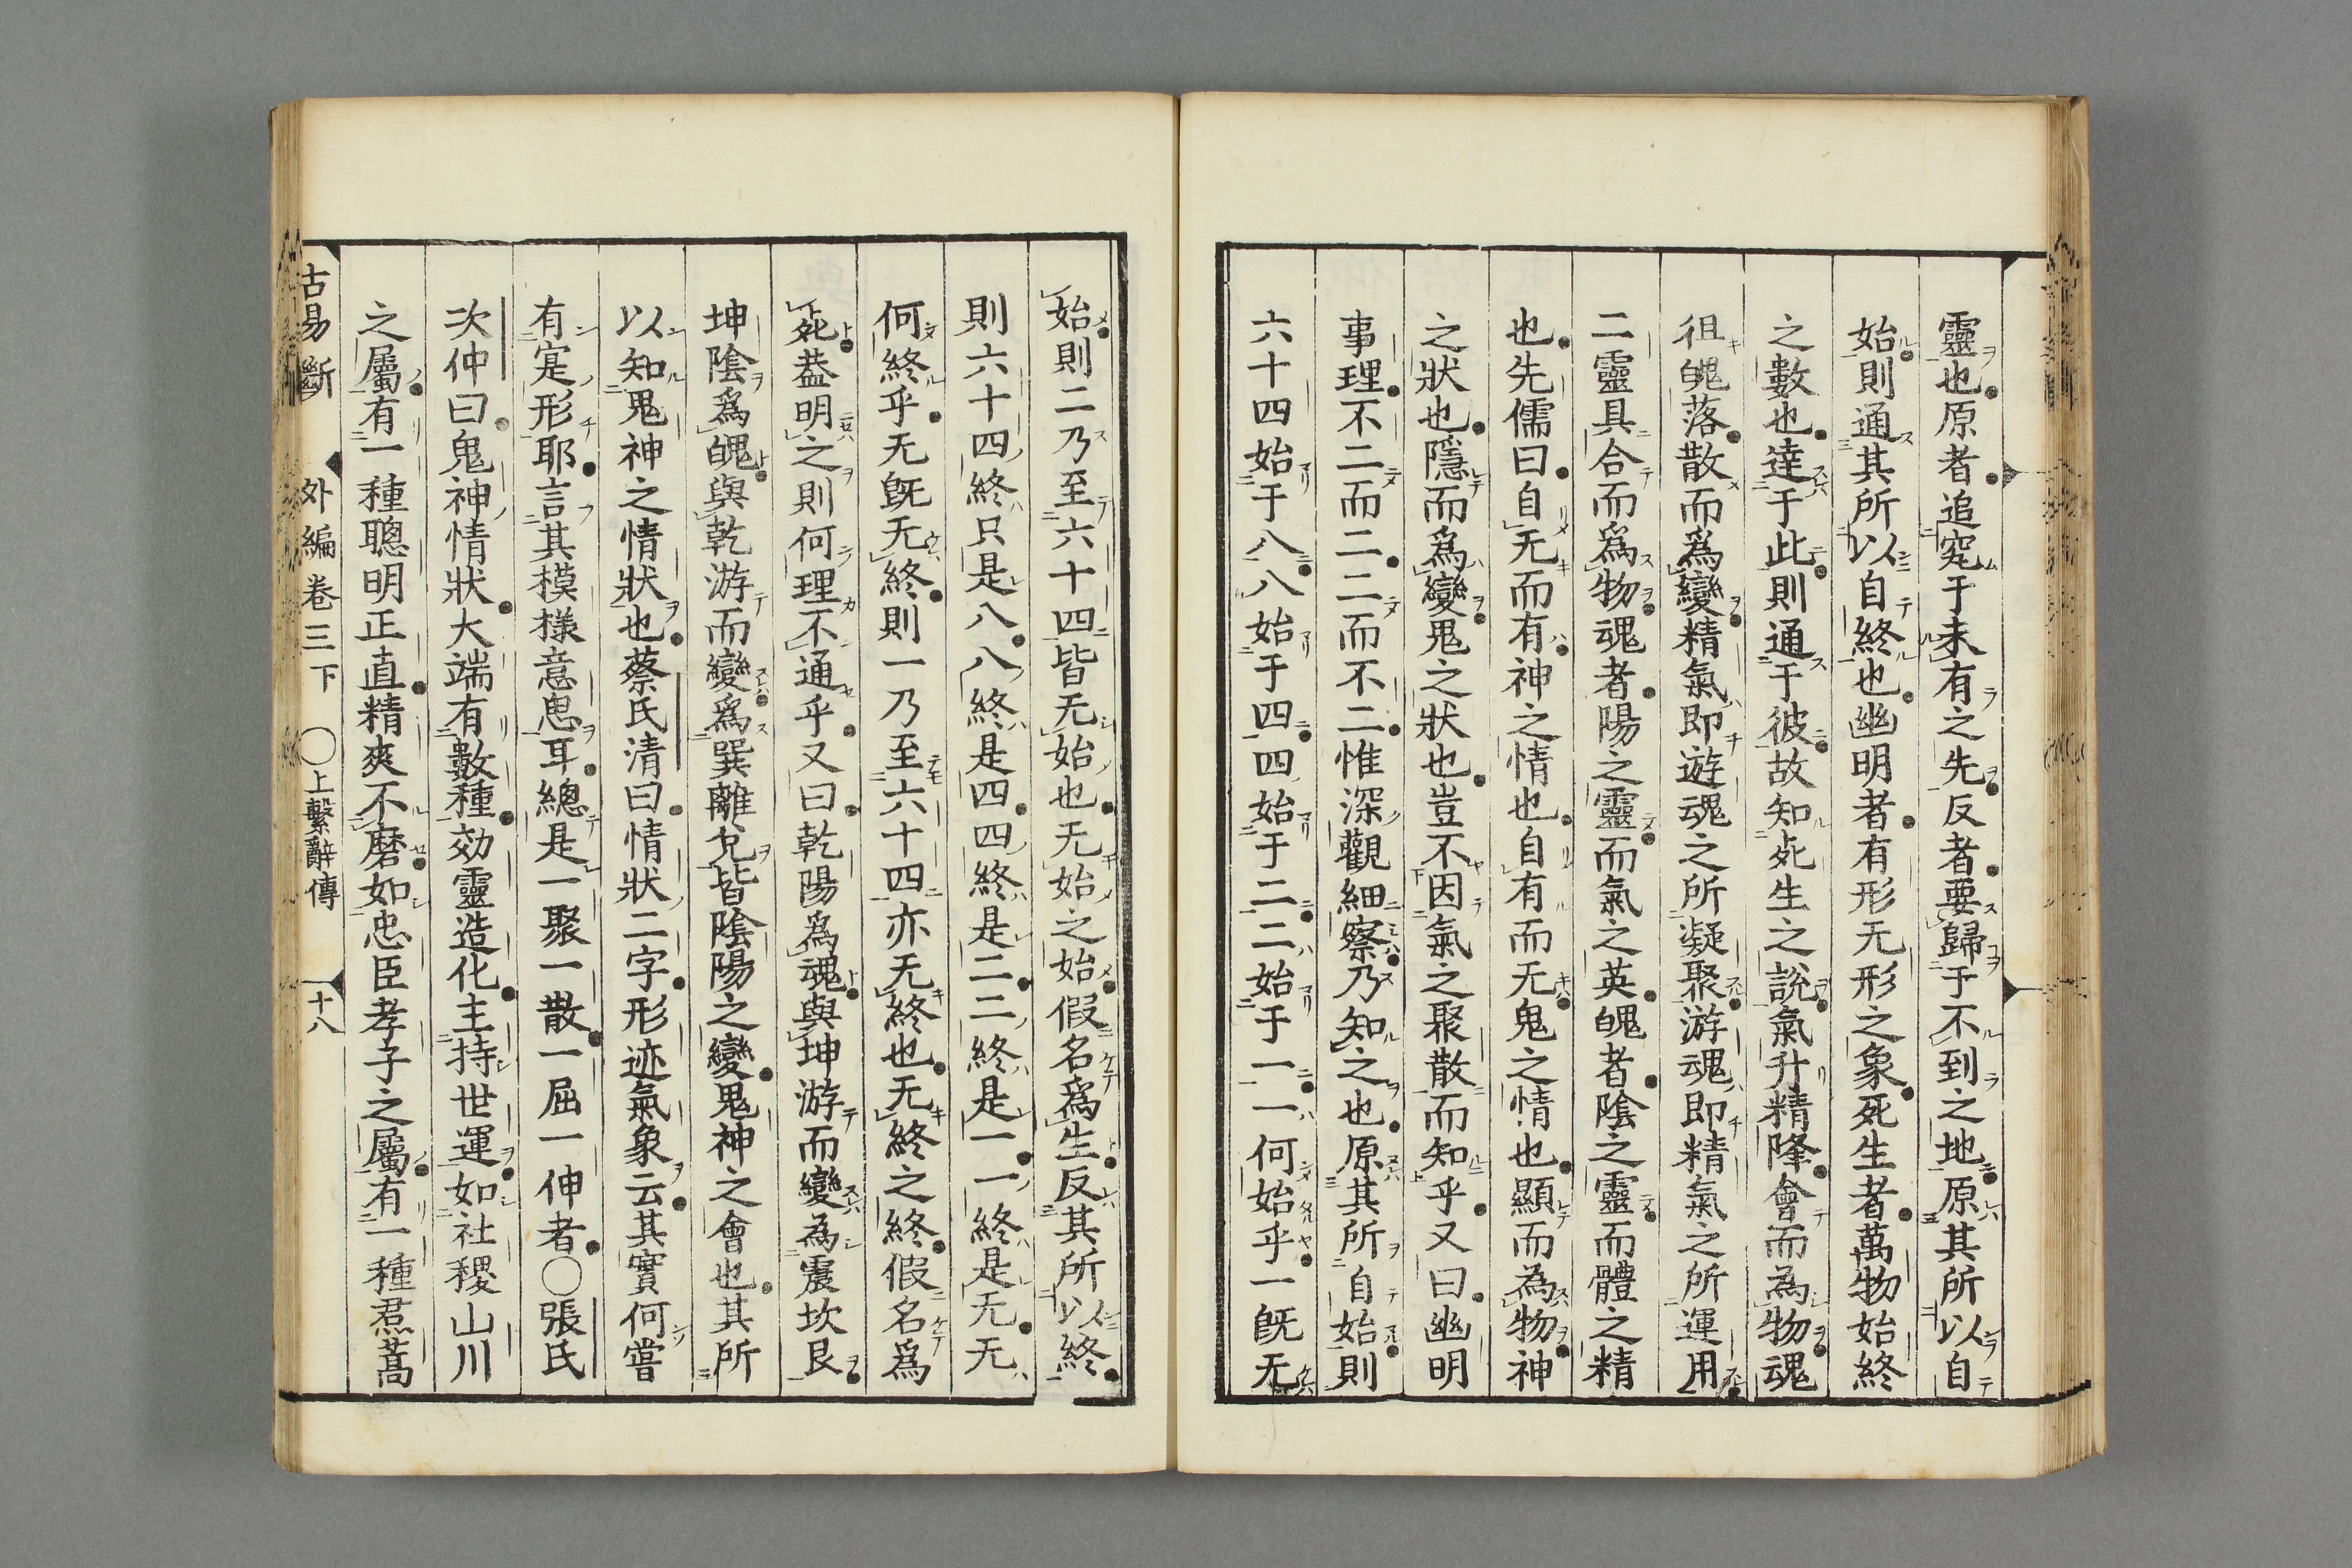 靈也原者追窮于未有之先反者要歸于不到之地原其所以自
始則通其所以自終也幽明者有形无形之象死生者萬物始終
之數也達于此則通于彼故知死生之說氣升精降會而為物魂
徂魄落散而爲變精氣即遊魂之所凝聚游魂即精氣之所運用
二靈具合而爲物魂者陽之靈而氣之英魄者陰之靈而體之精
也先儒曰自无而有神之情也自有而无鬼之情也顯而為物神
之狀也隱而爲變鬼之狀也豈不因氣之聚散而知乎又曰幽明
事理不二而二二而不二惟深觀細察乃知之也原其所自始則
六十四始于八八始于四四始于二二始于一一何始乎一旣无
始則二乃至六十四皆无始也无始之始假名爲生反其所以終
則六十四終只是八八終是四四終是二二終是一一終是无无
何終乎无旣无終則一乃至六十四亦无終也无終之終假名爲
死葢明之則何理不通乎又曰乾陽爲魂與坤游而變為震坎艮
坤陰爲魄與乾游而變爲巽離兌皆陰陽之變鬼神之會也其所
以知鬼神之情狀也蔡氏清曰情狀二字形迹氣象云其實何嘗
有寔形耶言其模樣意思耳總是一聚一散一屈一伸者〇張氏
次仲曰鬼神情狀大端有數種効靈造化主持世運如社稷山川
之屬有一種聰明正直精爽不磨如忠臣孝子之屬有一種焄蒿
古易斷　外編卷三下　〇上繫辭傳　十八